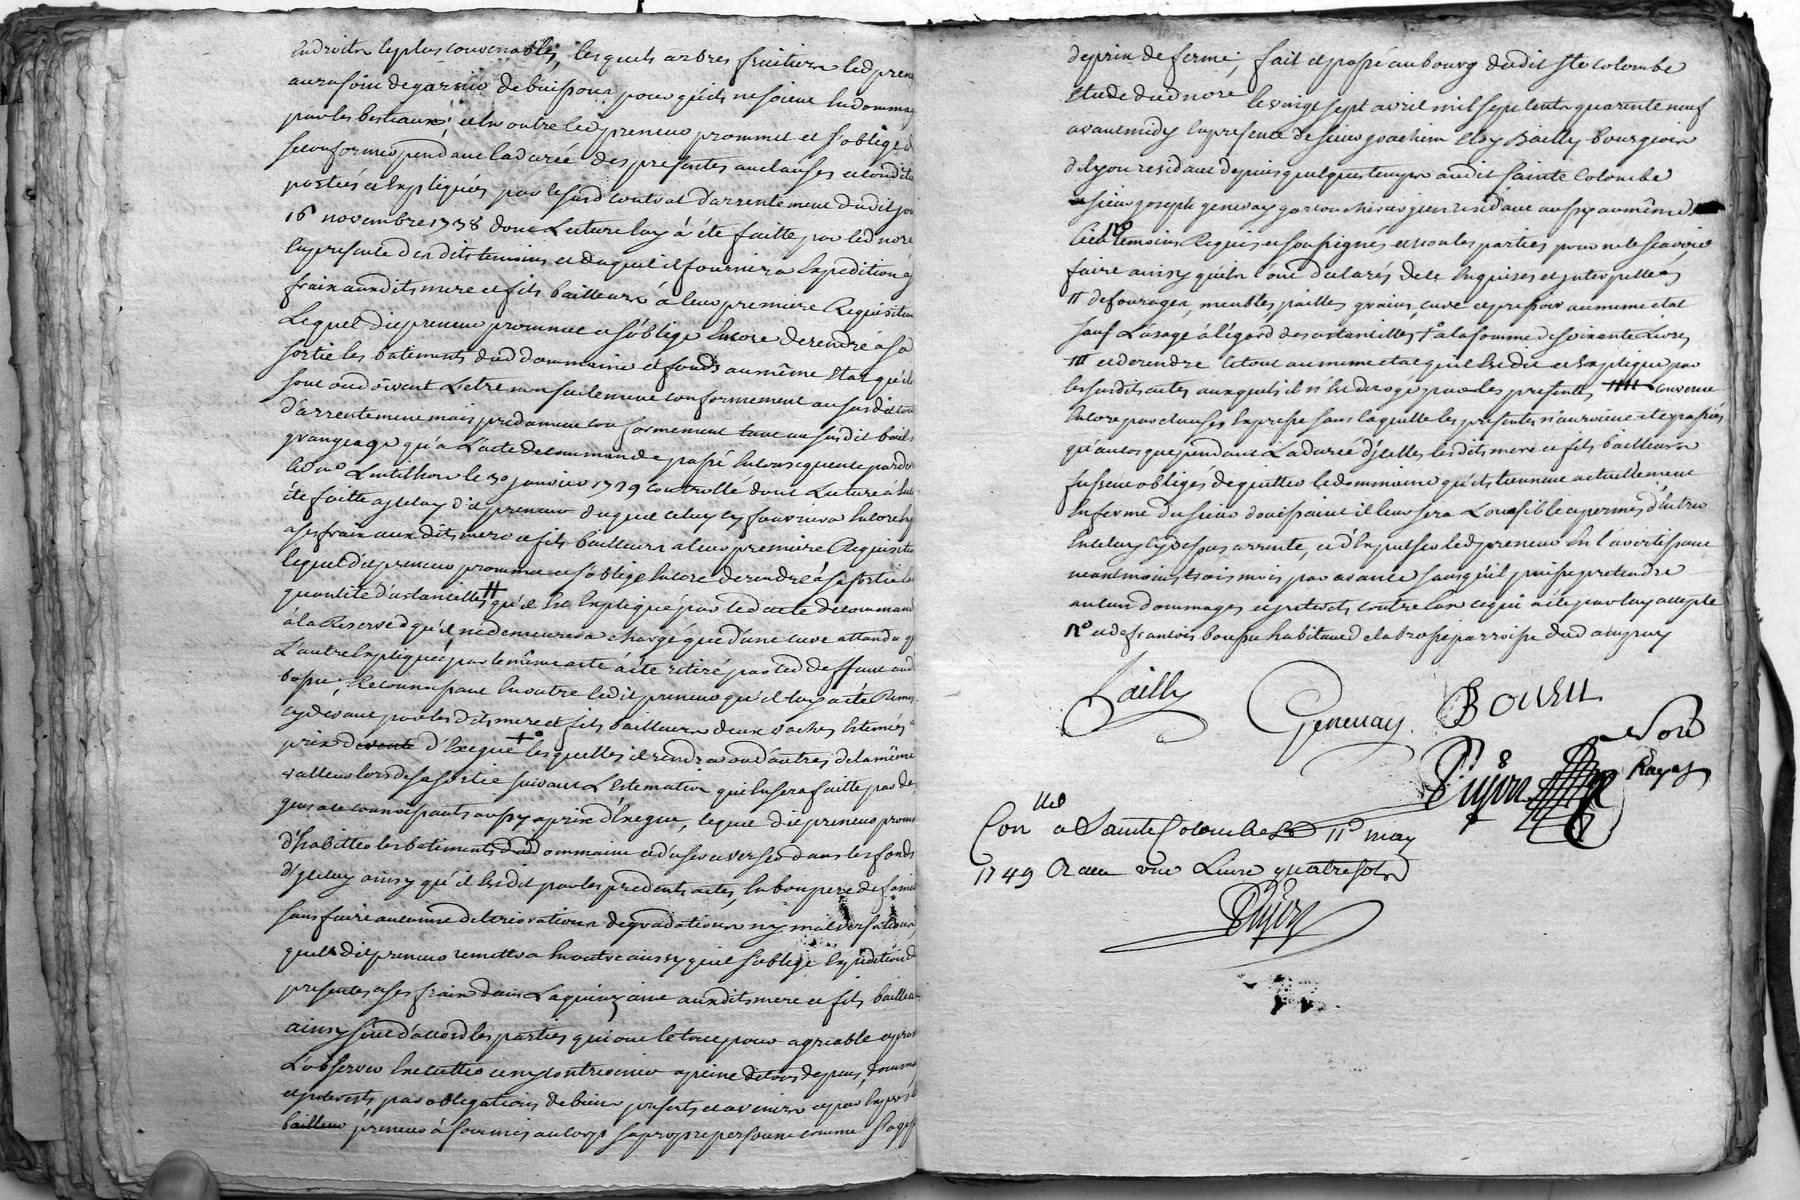 endroits les plus convenables, lesquels arbres fruitiers led preneur
aura soin de garnir de buissons pour qu'ils ne soient endommagés
par les bestiaux; et en outre led preneur promet et s'oblige de
se conformer pendant la durée des presentes aux clauses et conditions
portées et expliquées par le susd contrat d'arrentement dudit jour
16 novembre 1738 dont lecture luy à été faitte par led no.re
en presence desdits temoins et duquel il fournira expedition à ses
frais auxdits mere et fils bailleurs à leur premiere requisition
Lequel dit preneur promet et s'oblige encore de rendre à sa
sortie les batiments dud dommaine et fonds au même etat qu'ils
sont ou doivent l'etre non seulement conformement au susdit contrat
d'arrentement mais pred conformement tant au susdit bail à
grangeage qu'a l'acte de commande passé en consequence pardevant
led no.e Lentillon le 30 janvier 1739 controllé dont lecture à
été faitte à iceluy dit preneur duquel celuy cy fournira encore
à ses frais aux dits mere et fils bailleurs a leur premiere requisition
lequel dit preneur promet et s'oblige encore de rendre à sa sortie la
quantité d'ustancilles # qu'il est expliqué par led acte de commande
à la reserve qu'il ne demeurera chargé que d'une cuve attendu que
L'autre expliquée par le même acte à eté retiré par led deffunt
reconnaissant en outre ledit preneur qu'il luy a eté remis
cydevant par les dits mere et fils bailleurs deux vaches estimés
prix d'exegue +° lesquelles il rendra ou d'autres de la même
valleur lors de sa sortie suivant l'estimation qui en sera faitte par des
gens a ce connoissants aussy a prix d'exegue, lequel dit preneur promet
d'habitter les batiments dud dommaine et d'user et verser dans les fonds
d'yceluy ainsy qu'il est dit par les precedents actes, en bon pere de famille
sans faire aucunne deteriorations degradations ny malversations,
quel dit preneur remettra en outre ainsy qu'il s'oblige expedition des
presentes à ses frais dans la quinzaine auxdits mere et fils bailleurs
ainsy sont d'accord les parties qui ont le tout pour agréable et promettent
l'observer executter et n'y contrevenir a peine de tous depens, dommages
et interests par obligations de biens presents et avenirs et par exprès
bailleur preneur à soumis au corps sa propre personne comme s'agissant
de prix de ferme, fait et passé au bourg dudit Ste Colombe
Etude dud no.re le vingt sept avril mil sept cents quarente neuf
avant midy en presence de sieur joachim Eloy Bailly Bourgeois
de Lyon residant depuis quelques temps audit Sainte Colombe
sieur joseph genevay resident aussy au même
lieu N° temoins requis et soussignés et non les parties pour ne le scavoir
faire ainsy qu'ils ont declarés de ce enquises et interpellées
# de fourages, meubles, pailles, grains, cuve et pressoir au meme etat
sauf l'usage à l'egard des ustancilles + a la somme de soixante livres
## et de rendre le tout au meme etat qu'il est dit et expliqué par
les susdits actes auxquels il n'est derogé par les presentes ### convenu
encore par clauses expresse sans laquelle les presentes n'auroient eté passées
qu'au cas que pendant la durée d'ycelles lesdits mere et fils bailleurs
fussent obligés de quitter le dommaine qu'ils tiennent actuellement
en ferme du sieur il leur sera Loisible et permis d'entrer
en celuy cy dessus arrenté, et d'expulser led preneur en l'avertissant
neantmoins trois mois par avance sans qu'il puisse pretendre
aucuns dommages et interests contre eux ce qui a eté par luy accepté
N° et de francois bouvu habitant de la brosse parroisse dud ampuy
Bailly
Genevay
BOUVU
Dujon
No.re
Royal
Con.lle a Sainte Colombe le 11.e may
1749 Receu une Livre quatre sols
Dujon